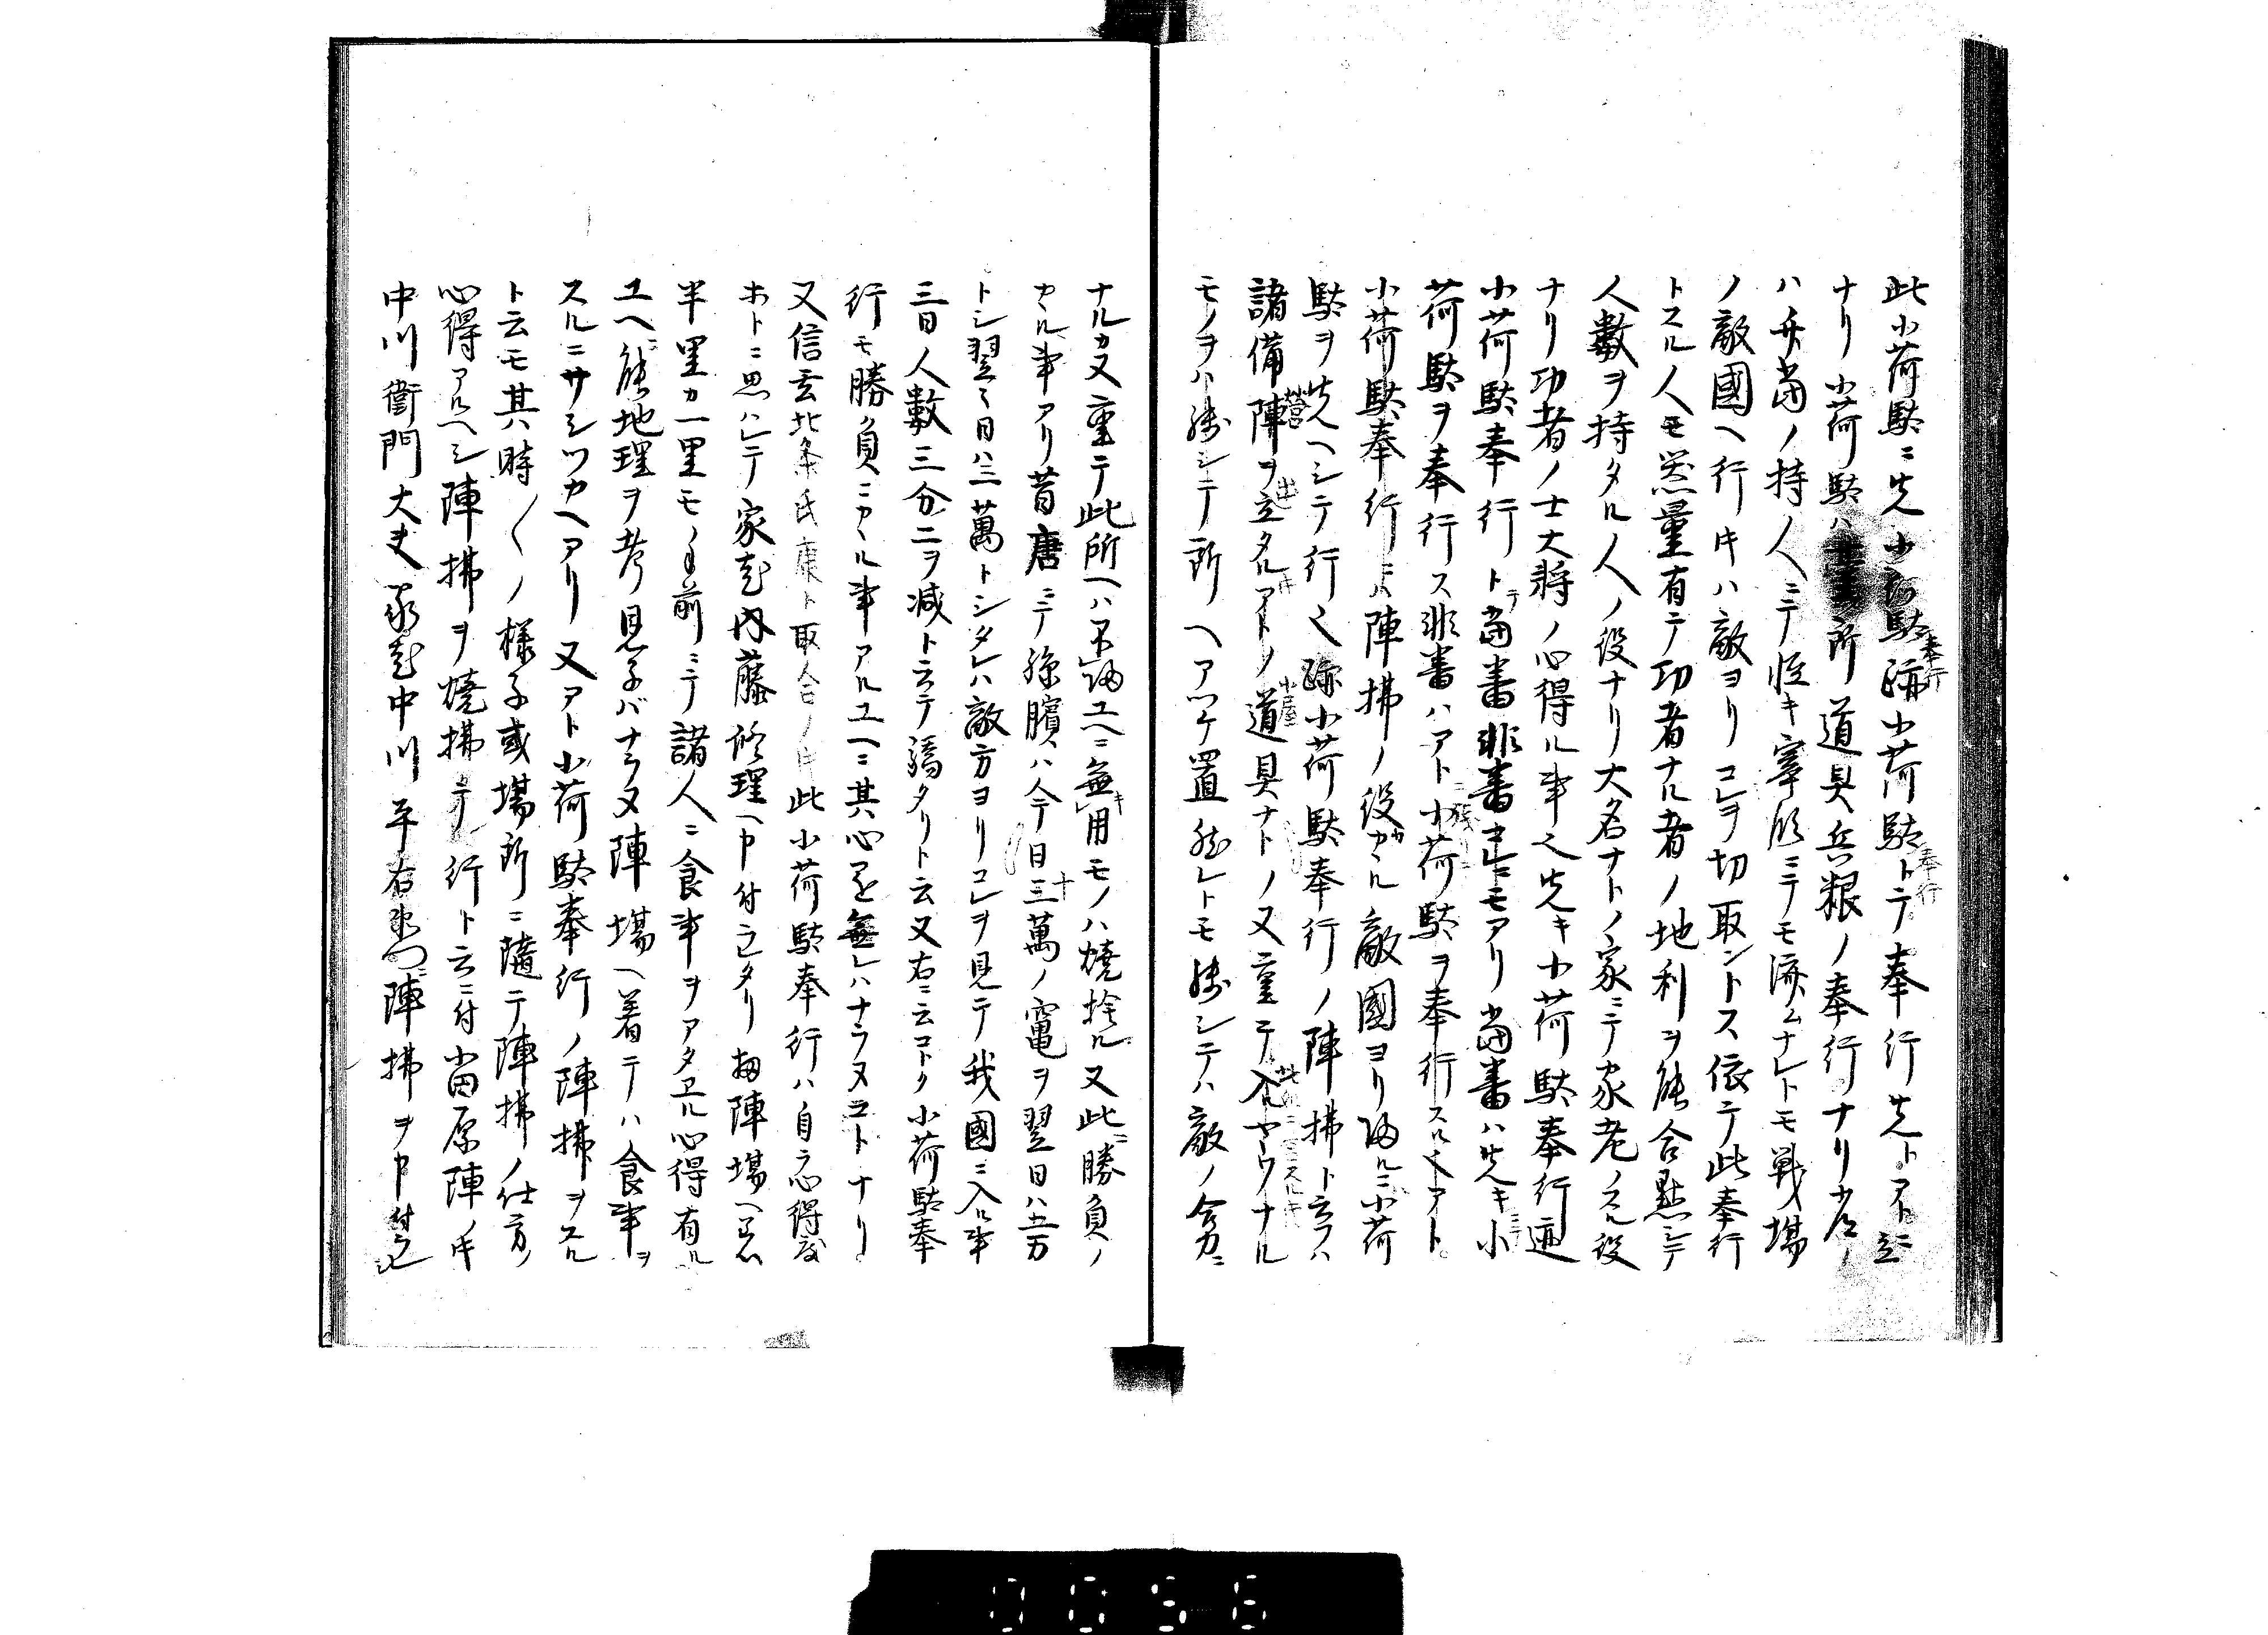 此小荷駄ニ先小荷駄奉行跡小荷駄奉行トテ奉行先トアトニ
ナリ小荷駄ハ所道具兵粮ノ奉行ナリ
ハ弁当ノ持人ニテ軽キ宰領ニテモ済ムナレトモ戦場
ノ敵國ヘ行トキハ敵ヨリコレヲ切取ントス依テ此奉行
トスル人モ器量有テ功者ナル者ノ地利ヲ能合點シテ
人數ヲ持タル人ノ役ナリ大名ナトノ家ニテ家老ノスル役
ナリ功者ノ士大将ノ心得ル事也先キ小荷駄奉行
小荷駄奉行トテ當番非番モアリ當番ハ先キ小
荷駄ヲ奉行ス非番ハアト小荷駄ヲ奉行スル也アト
小荷駄奉行ニハ陣拂ノ役カヽル敵國ヨリ帰ルニ小荷
駄ヲ先ヘシテ行也跡小荷駄奉行ノ陣拂ト云フハ
諸備陣営ヲ立タルアトノ小屋道具ナトノ又重テ入ヤウナル
モノヲハ残シテ所ヘアツケ置然レトモ残シテハ敵ノ合力ニ
ナルカ又重テ此所ヘハ不帰ユヘニ無用キモノハ焼捨ル又此ニ勝負ノ
カヽル事アリ昔唐ニテ孫臏ハ今日十三萬ノ竃ヲ翌日ハ五万
トシ翌々日ハ三萬トシタレハ敵方ヨリコレヲ見テ我國ニ入ル事
三日人數三分二ヲ減ト云テ驕タリト云又右ニ云コトク小荷駄奉
行モ勝負ニカヽル事アルユヘニ其心ヲ無レハナラヌコトナリ
又信玄北条氏康ト取合ノトキ此小荷駄奉行ハ自ラ心得度
ホトニ思ハレテ家老内藤修理ヘ申付ラレタリ扨陣場ヘ着
半里カ一里モ手前ニテ諸人ニ食事ヲアタヱル心得有ル
ユヘニ能地理ヲ考見子バナラヌ陣場ヘ着テハ食事ヲ
スルニサシツカヘアリ又アト小荷駄奉行ノ陣拂ヲスル
ト云モ其ハ時〳〵ノ様子或場所ニ隨テ陣拂ノ仕方ノ
心得アルヘシ陣拂ヲ焼拂テ行ト云ニ付小田原陣ノトキ
中川衛門大夫家老中川平右衛門陣拂ヲ申付ラレ